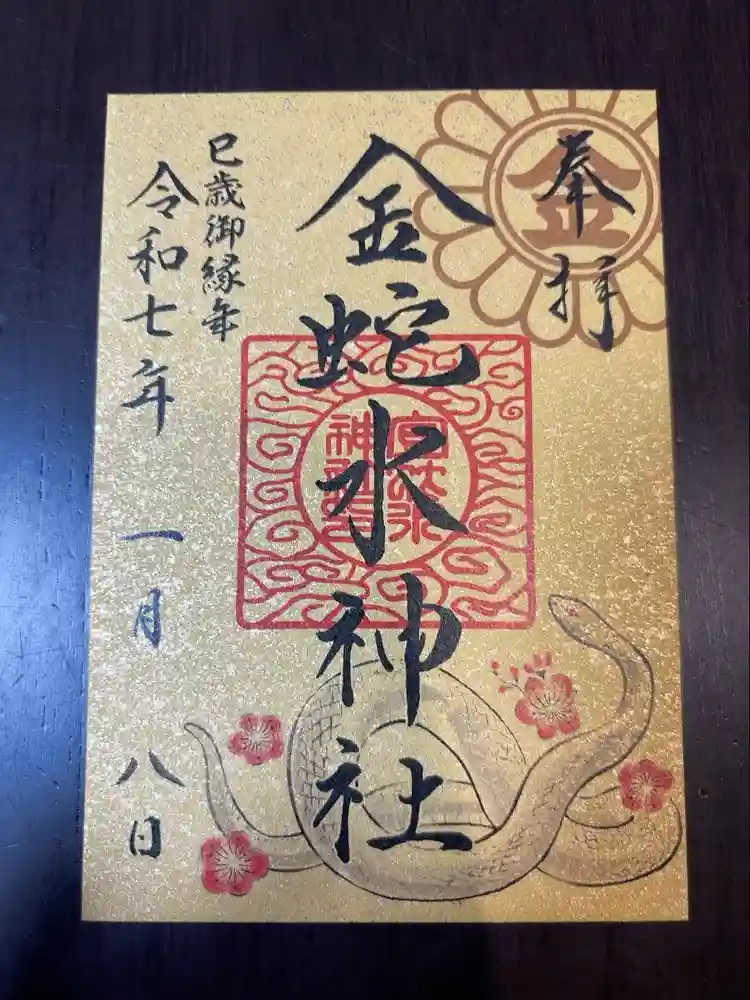 奉拝
金
金蛇水神社
巳歳御縁年
令和七年 一月 八日